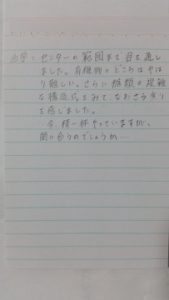 化学：センターの範囲まで目を通し
ました。有機物のところはやは
り難しい。さらに糖類の複雑
な構造式をみて、なおさら焦り
を感じました。
今、精一杯やっていますが、
間に合うのでしょうか…